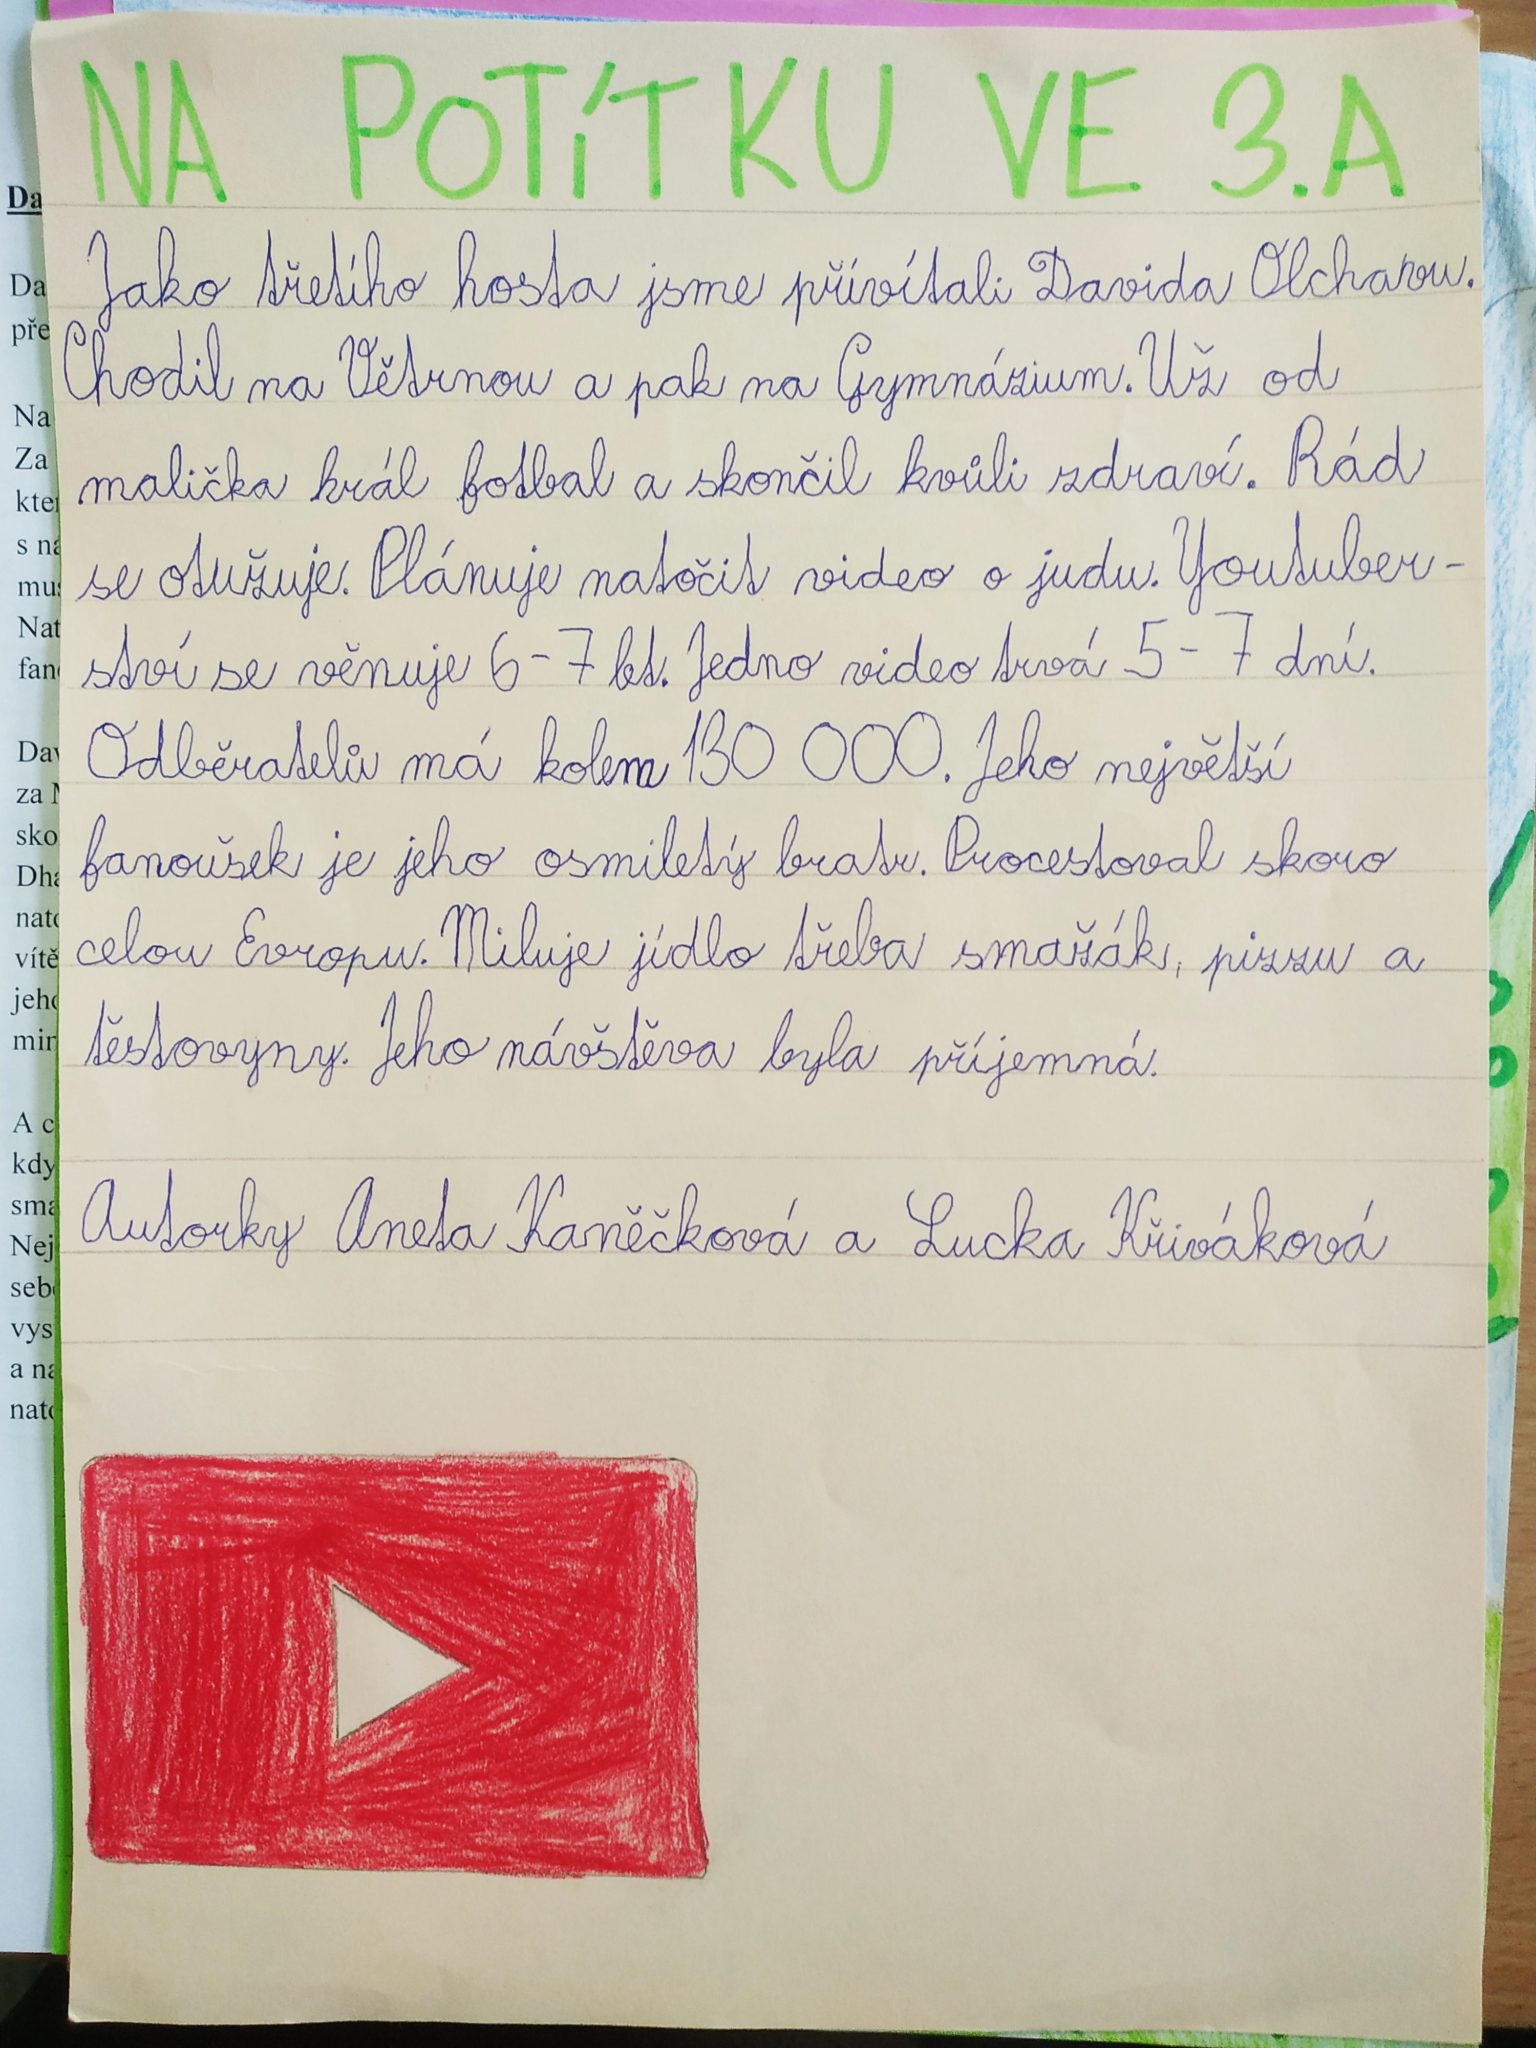 NA POTÍTKU VE 3.A
Jako třetího hosta jsme přívítali Davida Olcharu.
Chodil na Větrnou a pak na Gymnázium. Už od
malička hrál fotbal a skončil kvůli zdraví. Rád
se otužuje. Plánuje natočit video o judu. Youtuber-
ství se věnuje 6-7 let. Jedno video trvá 5-7 dní.
Odběratelů má kolem 130 000. Jeho největší
fanoušek je jeho osmiletý bratr. Procestoval skoro
celou Evropu. Miluje jídlo třeba smažák, pizzu a
těstovyny. Jeho návštěva byla příjemná.
Autorky Aneta Kaněčková a Lucka Křiváková
Da
Da
pře
Na
Za
kte
s na
mus
Nat
fano
Dav
za
sko
Dha
nato
vítě
jeho
min
A c
kdy
sma
Nej
sebe
vys
a na
nato